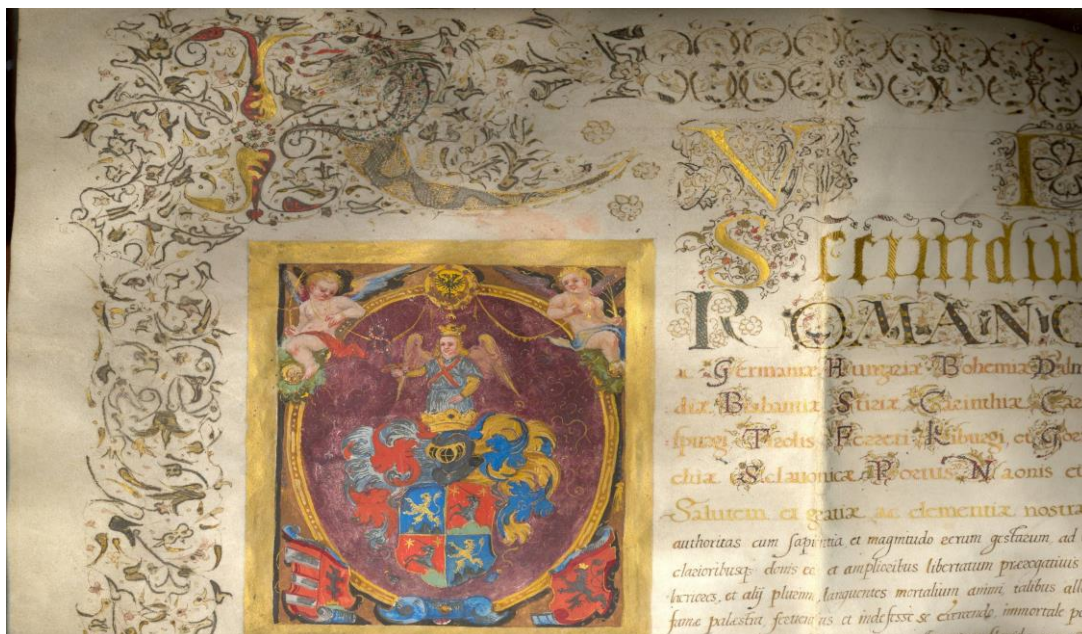 V
Secundu
ROMANO
Germaniæ Hungariæ Bohemiæ Dalm
diæ Brabantiæ Stiriæ Carinthiæ Car
spurgi Tirolis Ferreti Kiburgi, et Goe
chiæ Sclauonicæ Portus Naonis et
Salutem ex gratiæ ac clementiæ nostræ
authoritas cum sapientia et magnitudo rerum gestarum, ad
clarioribusq; donis et amplioribus libertatum prærogatiuis
et alij languentes mortalium animi, talibus all
famæ palæstra, et indefesse se exercendo, immortale